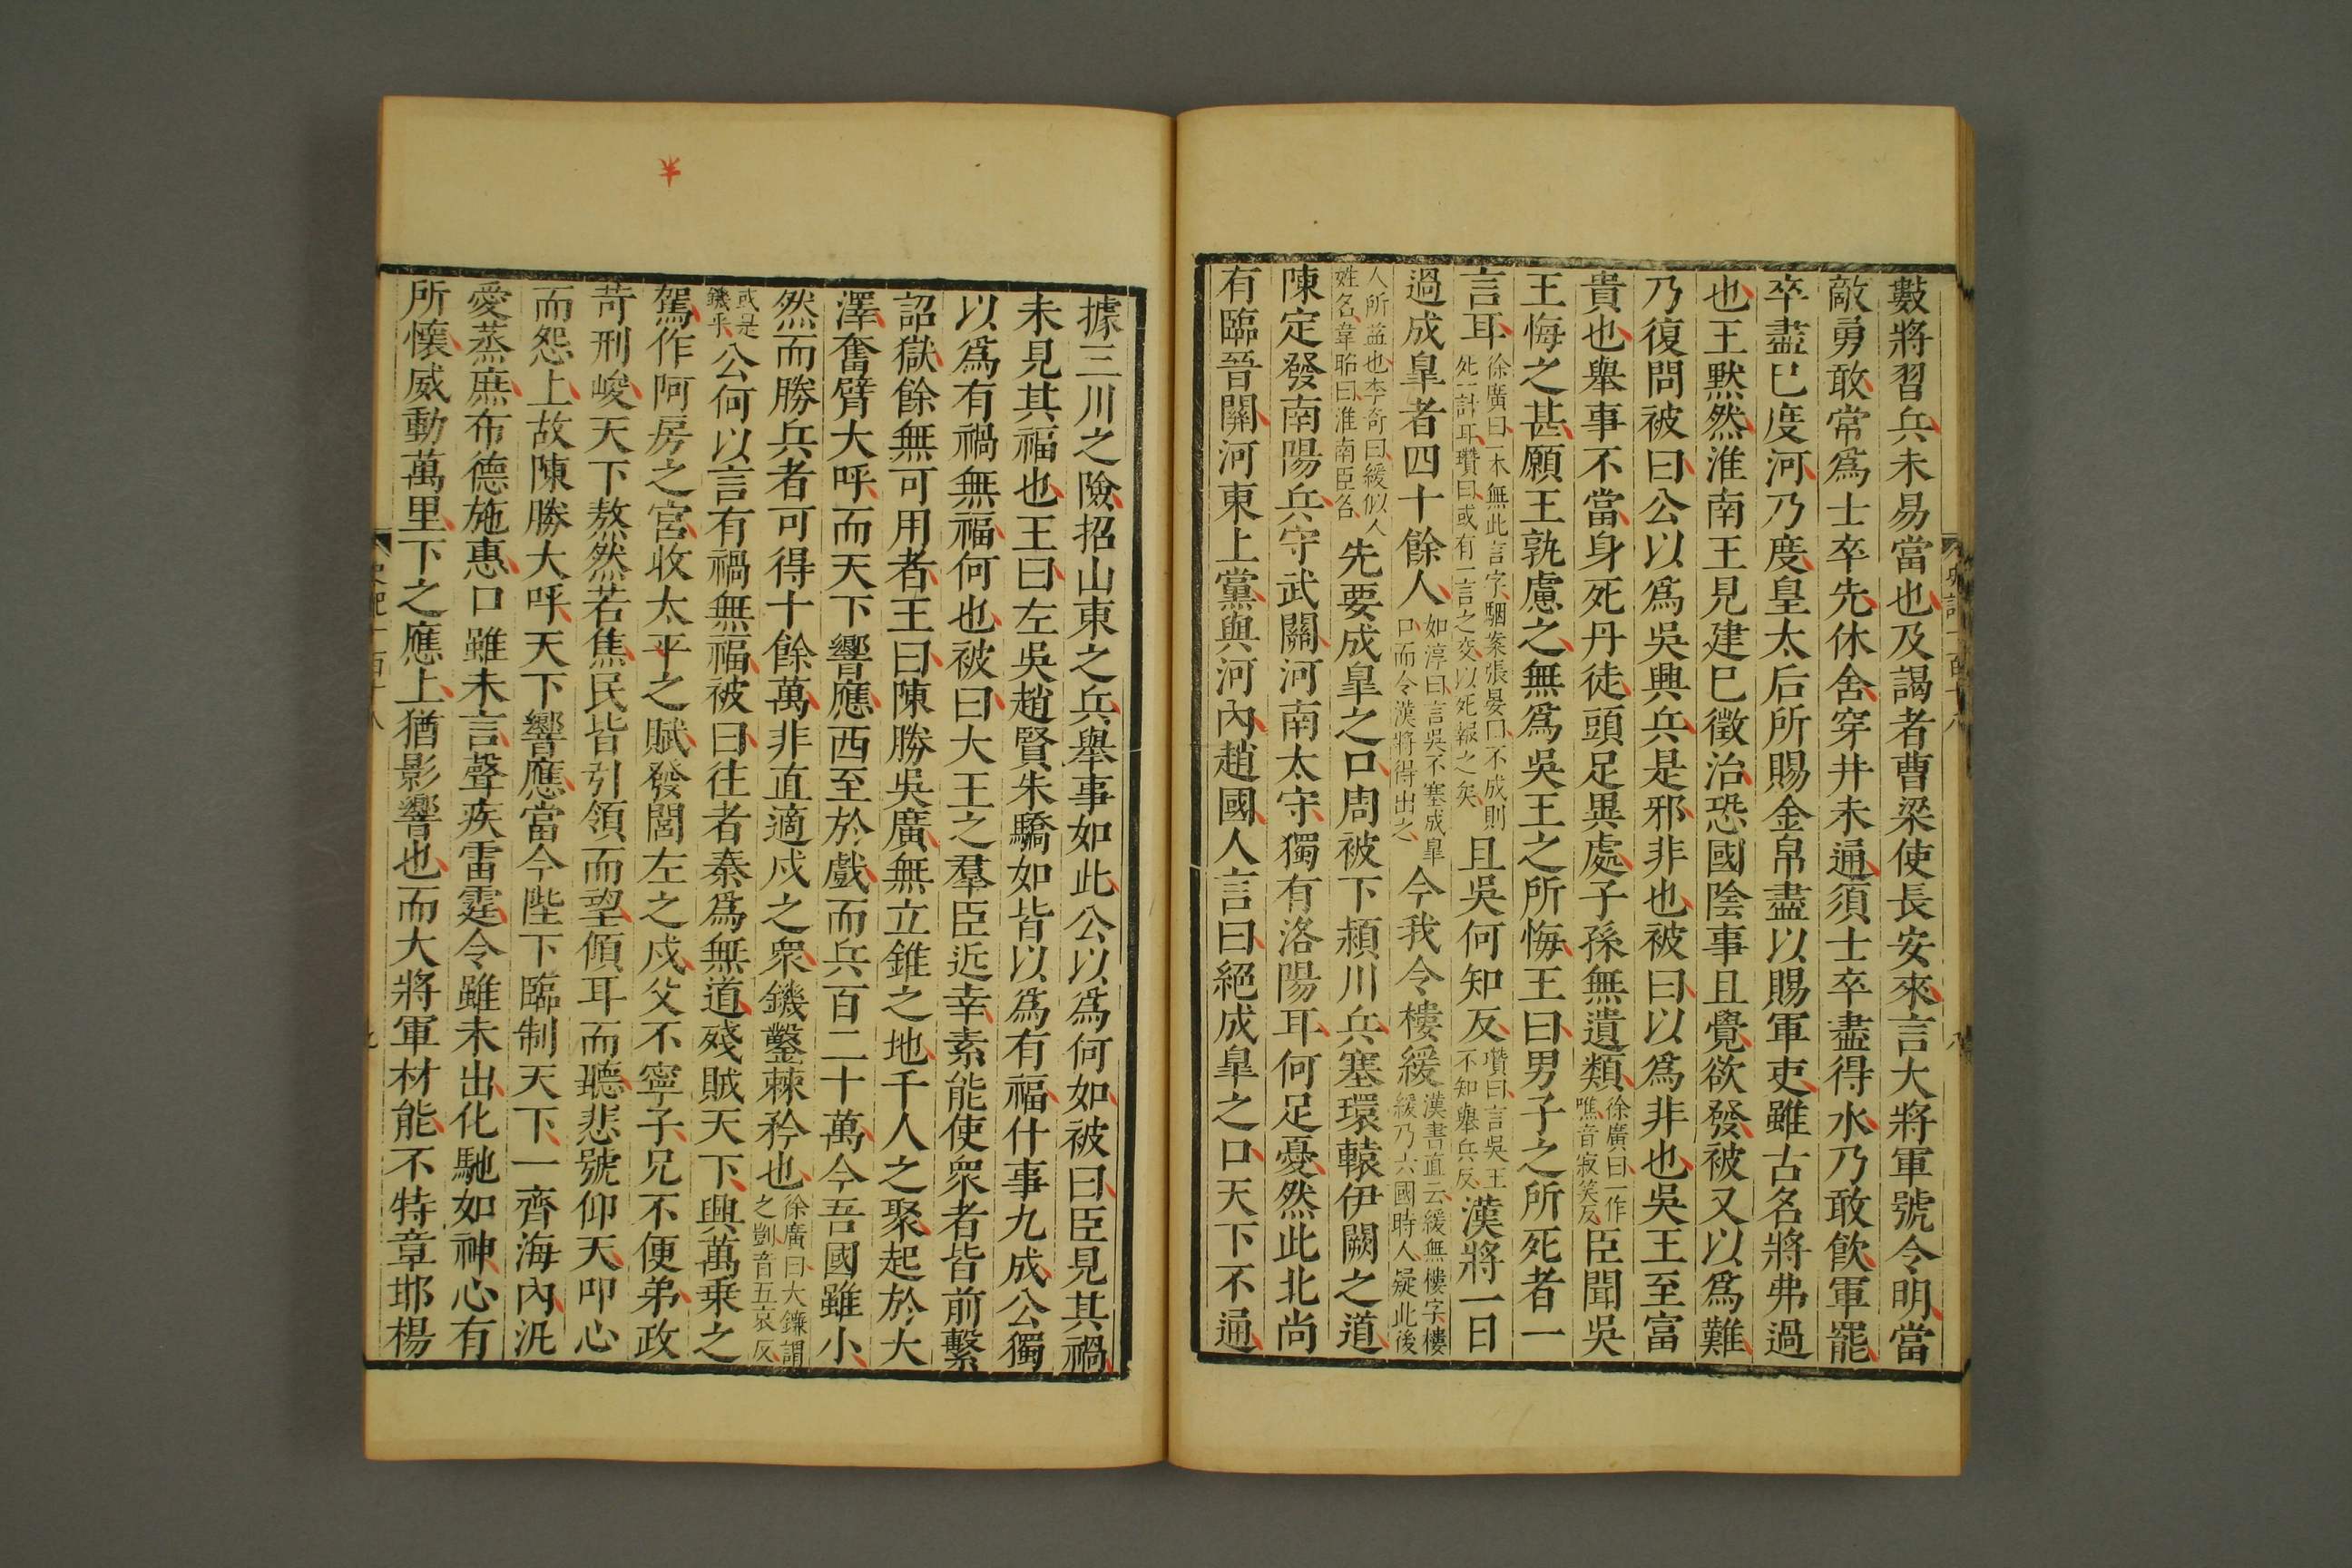 數將習兵未易當也及謁者曹梁使長安來言大將軍號令明當
敵勇敢常爲士卒先休舍穿井未通須士卒盡得水乃敢飮軍罷
卒盡已度河乃度皇太后所賜金帛盡以賜軍吏雖古名將弗過
也王默然淮南王見建已徵治恐國陰事且覺欲發被又以爲難
乃復問被曰公以爲吳興兵是邪非也被曰以爲非也吳王至富
貴也舉事不當身死丹徒頭足異處子孫無遺類徐廣曰一作噍音寂笑反臣聞吳
王悔之甚願王孰慮之無爲吳王之所悔王曰男子之所死者一
言耳徐廣曰一本無此言字駰案張晏曰不成則死一計耳瓚曰或有一言之交以死報之矣且吳何知反瓚曰言吳王不知舉兵反漢將一日
過成皐者四十餘人如淳曰言吳不塞成皐口而令漢將得出之今我令樓緩漢書直云緩無樓字樓緩乃六國時人疑此後
人所益也李奇曰緩似人姓名韋昭曰淮南臣名先要成皐之口周被下潁川兵塞環轅伊闕之道
陳定發南陽兵守武關河南太守獨有洛陽耳何足憂然此北尚
有臨晉關河東上黨與河內趙國人言曰絕成皐之口天下不通
史記一百十八
八
據三川之險招山東之兵舉事如此公以爲何如被曰臣見其禍
未見其福也王曰左吳趙賢朱驕如皆以爲有福什事九成公獨
以爲有禍無福何也被曰大王之羣臣近幸素能使衆者皆前繫
詔獄餘無可用者王曰陳勝吳廣無立錐之地千人之聚起於大
澤奮臂大呼而天下響應西至於戲而兵百二十萬今吾國雖小
然而勝兵者可得十餘萬非直適戍之衆鐖鑿棘矜也徐廣曰大鐮謂之剴音五哀反
或是鐖乎公何以言有禍無福被曰往者秦爲無道殘賊天下興萬乘之
駕作阿房之宮收太平之賦發閭左之戍父不寧子兄不便弟政
苛刑峻天下熬然若焦民皆引領而望傾耳而聽悲號仰天叩心
而怨上故陳勝大呼天下響應當今陛下臨制天下一齊海內汎
愛蒸庶布德施惠口雖未言聲疾雷霆令雖未出化馳如神心有
所懷威動萬里下之應上猶影響也而大將軍材能不特章邯楊
史記一百十八
九